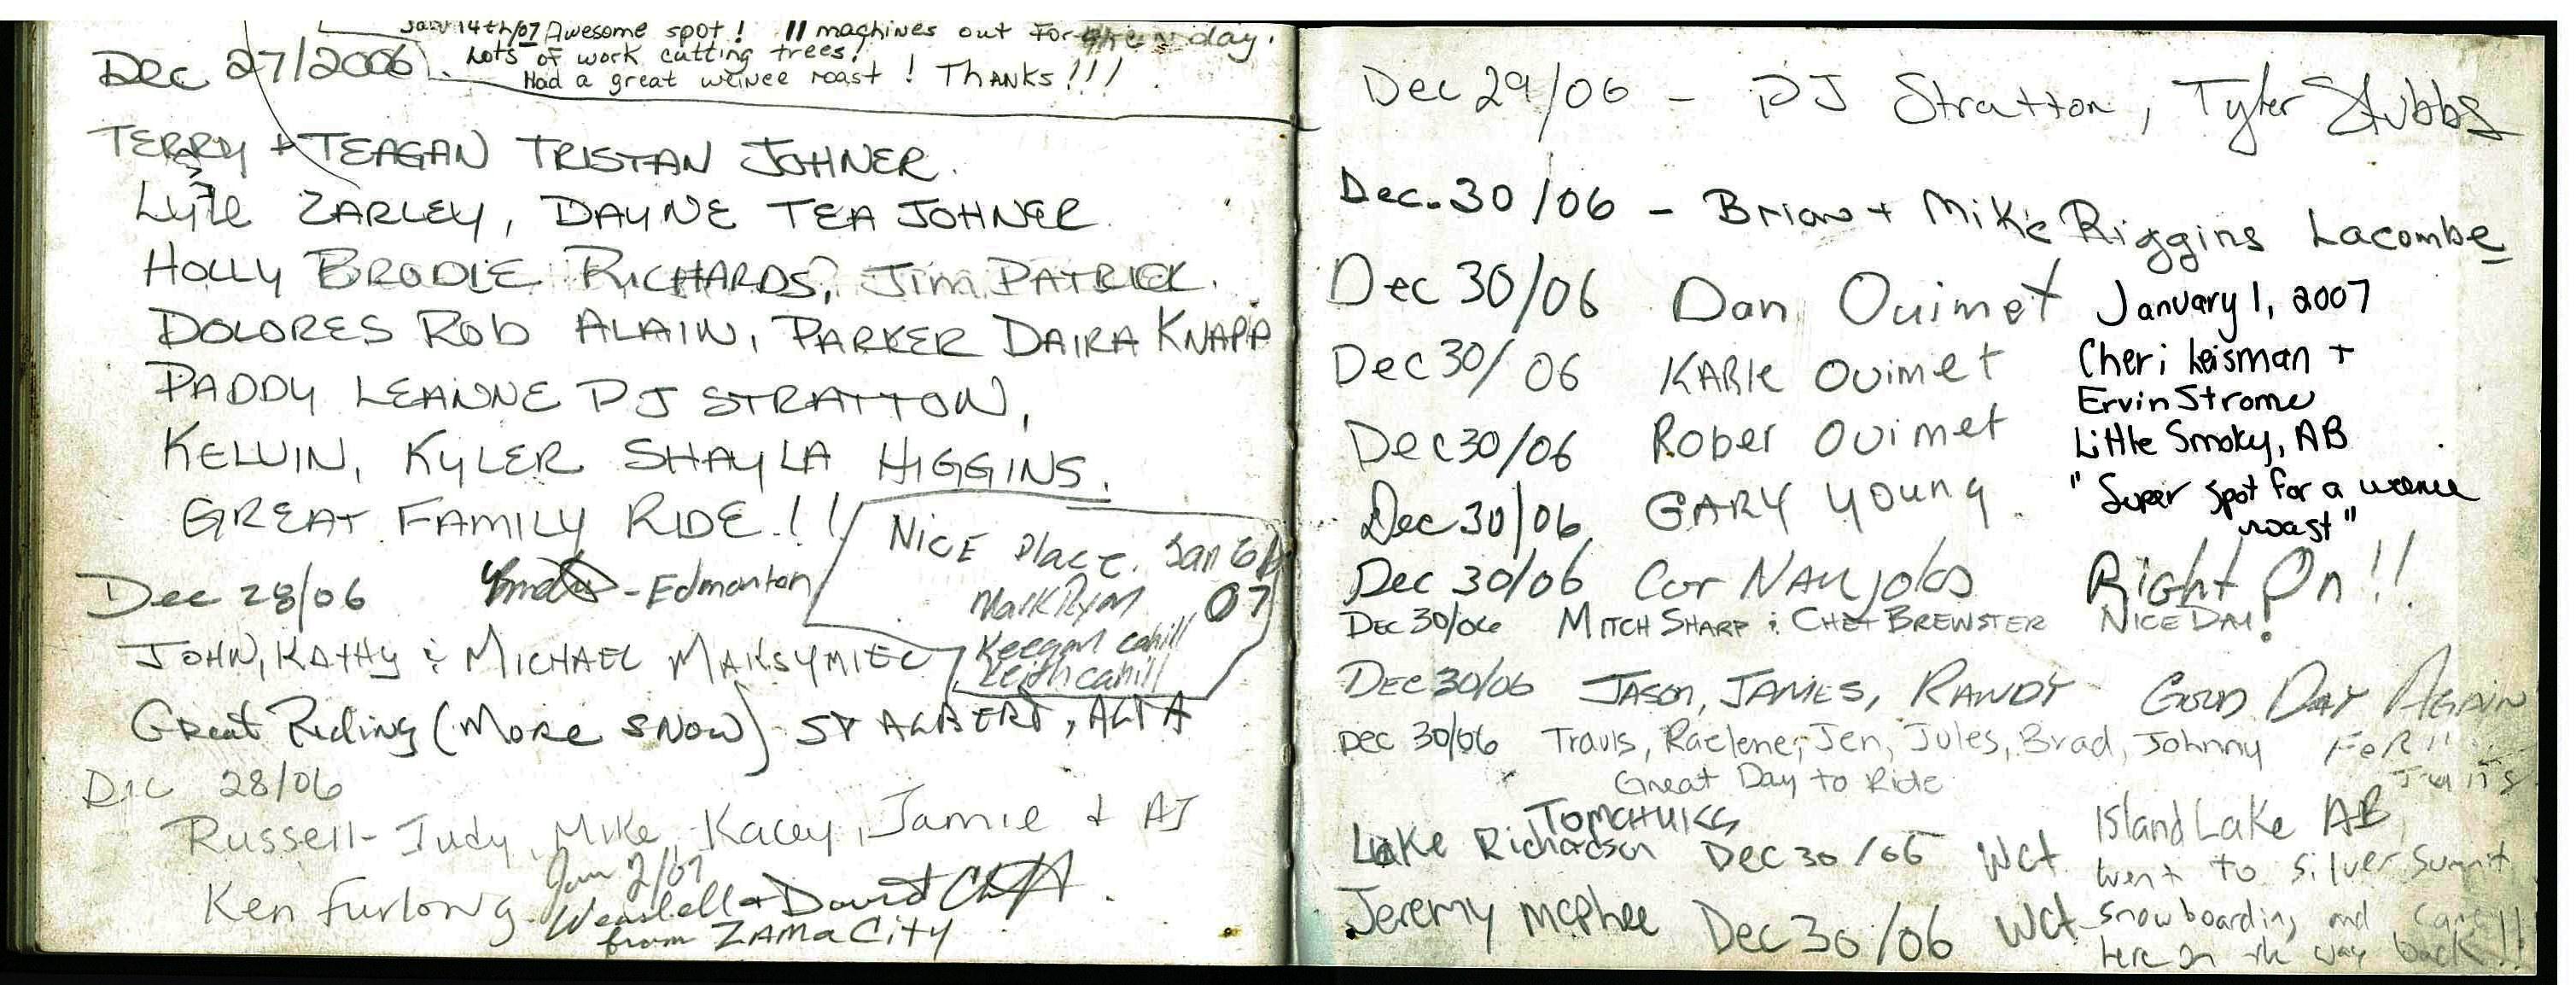 Jan 14th/07 Awesome spot! 11 machines out for day.
Lots of work cutting trees!
Had a great weinee roast! THANKS!!!
Dec 27/2006
TERRY + TEAGAN TRISTAN JOHNER.
Lyle ZARLEY, DAYNE TEA JOHNER
HOLLY BRODIE RICHARDS, Jim PATRICK.
DOLORES ROB ALAIN, PARKER DAIRA KNAPP
PADDY LEANNE PJ STRATTON,
KELVIN, KYLER SHAYLA HIGGINS.
GREAT FAMILY RIDE!!
NICE place. Jan 6th
07
Mark Ryan
Keegan cahill
Keith cahill
Dec 28/06 - Edmonton
JOHN, KATHY & MICHAEL MAKSYMIEC
Great Riding (More snow) ST ALBERT, ALTA
Dec 28/06
Russell - Judy, Mike, Kacey, Jamie + AJ
Ken Furlong
Jan 2/07
+ David
from ZAMA CITY
Dec 29/06 - PJ Stratton, Tyler Stubbs
Dec. 30/06 - Brian + Mike Riggins Lacombe
Dec 30/06 Dan Ouimet
Dec 30/06 KARIE Ouimet
Dec 30/06 Rober Ouimet
Dec 30/06 GARY Young
Dec 30/06 Cor
January 1, 2007
Cheri Leisman +
Ervin Strome
Little Smoky, AB
"Super spot for a weenee
roast"
Right On!!
DEC 30/06 MITCH SHARP & CHET BREWSTER NICE DAY!
DEC 30/06 JASON, JAMES, RANDY GOOD DAY AGAIN
Dec 30/06 Travis, Raelene, Jen, Jules, Brad, Johnny
Great Day to Ride
TOMCHUKS
Luke Richardson Dec 30/06 Wct
Jeremy mcphee Dec 30/06 Wct
Island Lake AB
went to silver summit
snowboarding and came
here on the way back!!